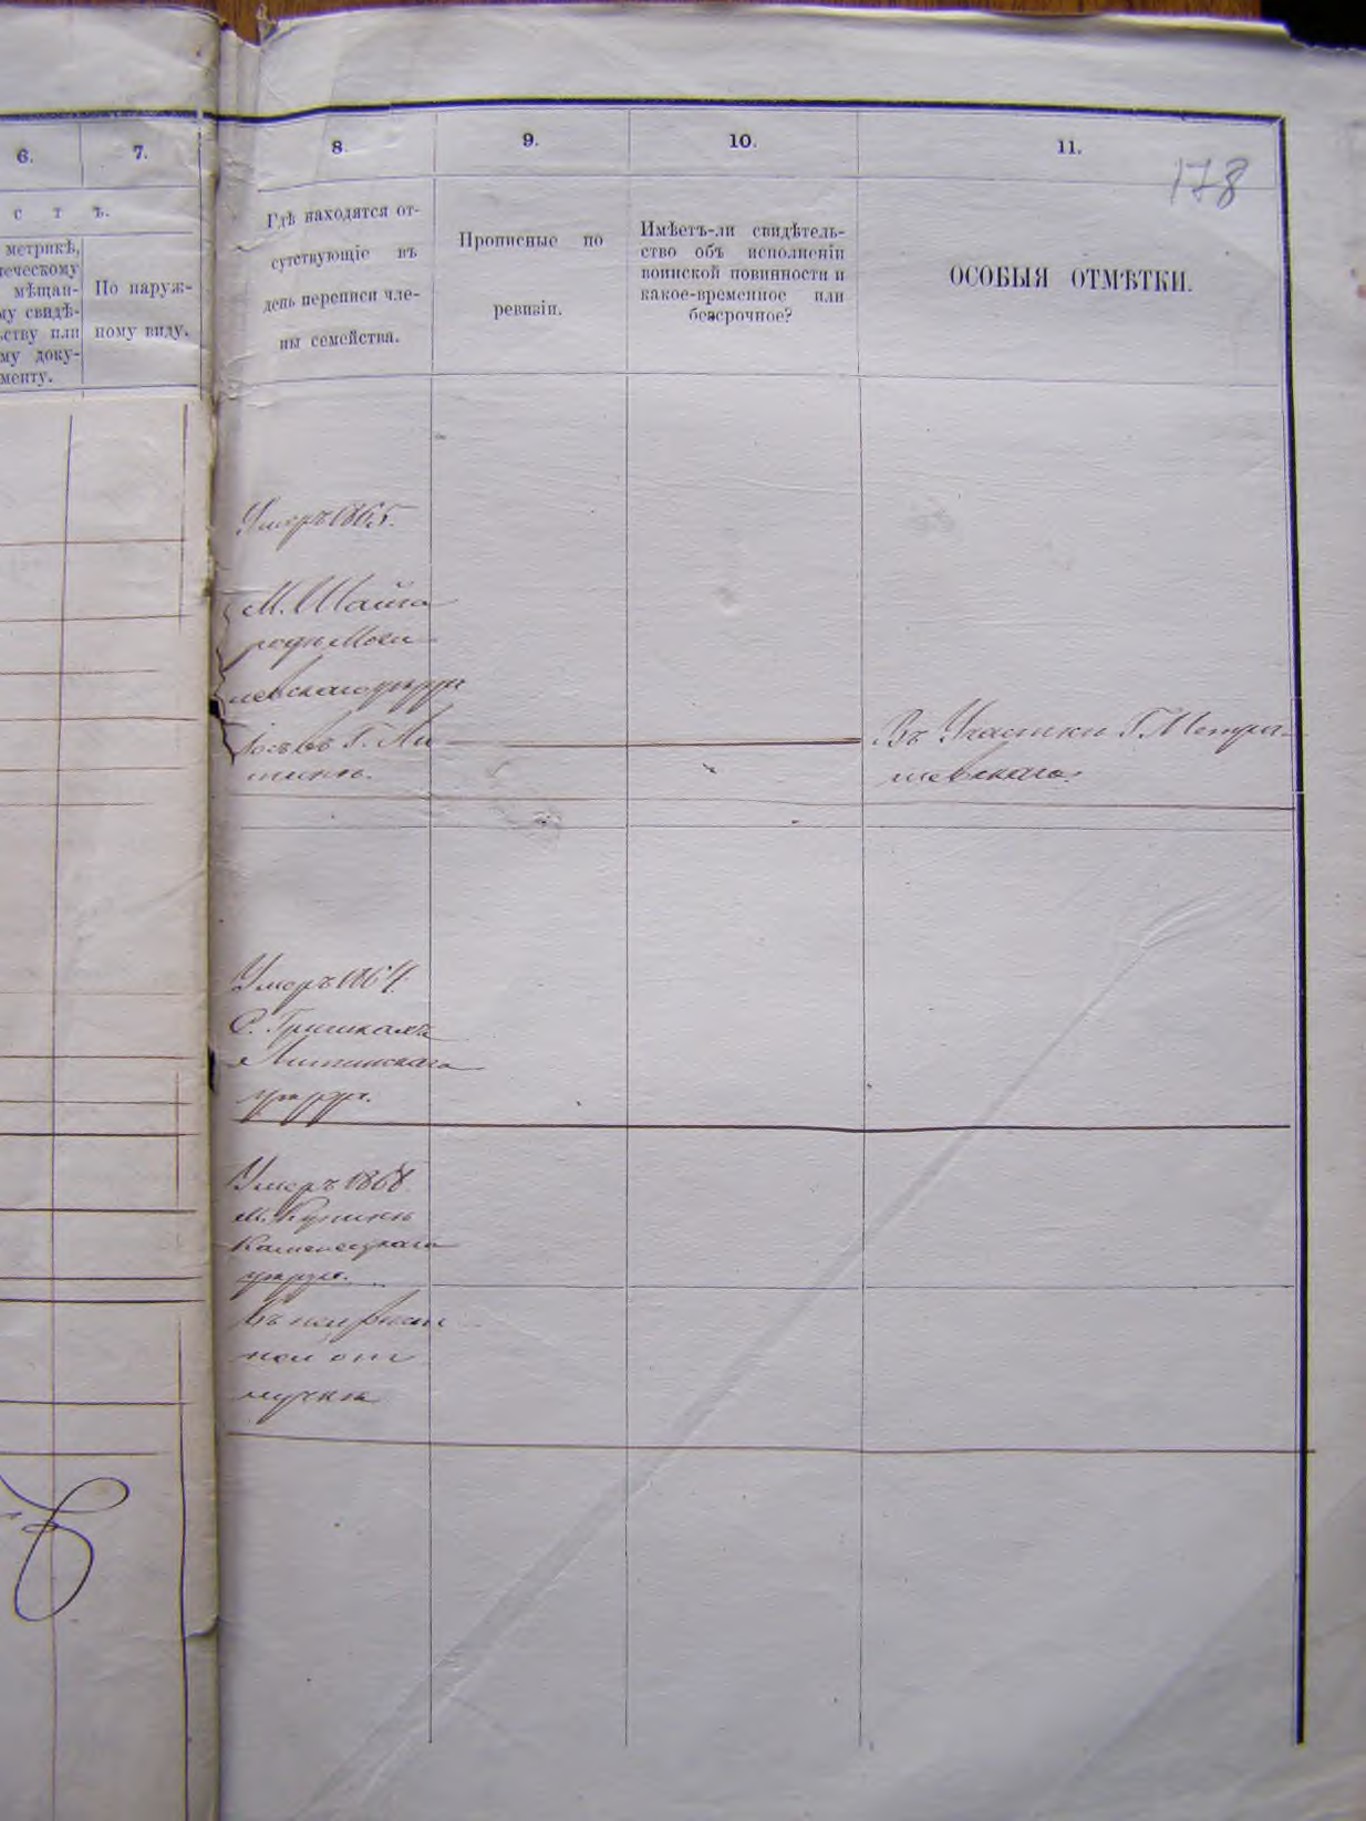 6.
7.
8.
9.
10.
11.
178
с т ъ.
метрикѣ,
мѣщан-
свидѣ-
ству или
му доку-
менту.
По наруж-
ному виду.
Гдѣ находятся от-
сутствующіе въ
день переписи чле-
ны семейства.
Прописные по
ревизіи.
Имѣетъ-ли свидѣтель-
ство объ исполненіи
воинской повинности и
какое-временное или
безсрочное?
ОСОБЫЯ ОТМѢТКИ.
Умеръ 1865.
М. Шайго
родъ Моги
левскаго уѣзда
Іосьов Г. Ли
тинъ.
Въ Участкѣ Г.
Умеръ 1864.
С. Гришкахъ
Литинскаго
уѣзда.
Умеръ 1868
м. Купинъ
Каменецкаго
уѣзда.
Въ неизвѣст
ной от
лучкѣ